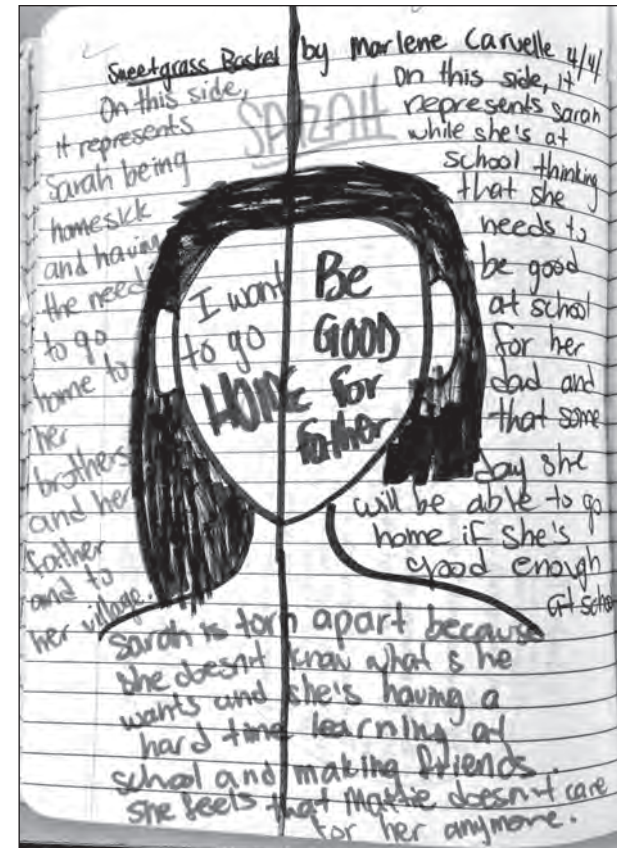 Sweetgrass Basket by Marlene Carvelle 4/4/
SARAH
On this side,
it represents
Sarah being
homesick
and having
the need
to go
home to
her
brothers
and her
father
and to
her village.
On this side, it
represents sarah
while she's at
school thinking
that she
needs to
be good
at school
for her
dad and
that some
day she
will be able to go
home if she's
good enough
at school
I want
to go
HOME
Be
GOOD
for
father
Sarah is torn apart because
she doesn't know what she
wants and she's having a
hard time learning at
school and making friends.
She feels that Mattie doesn't care
for her anymore.